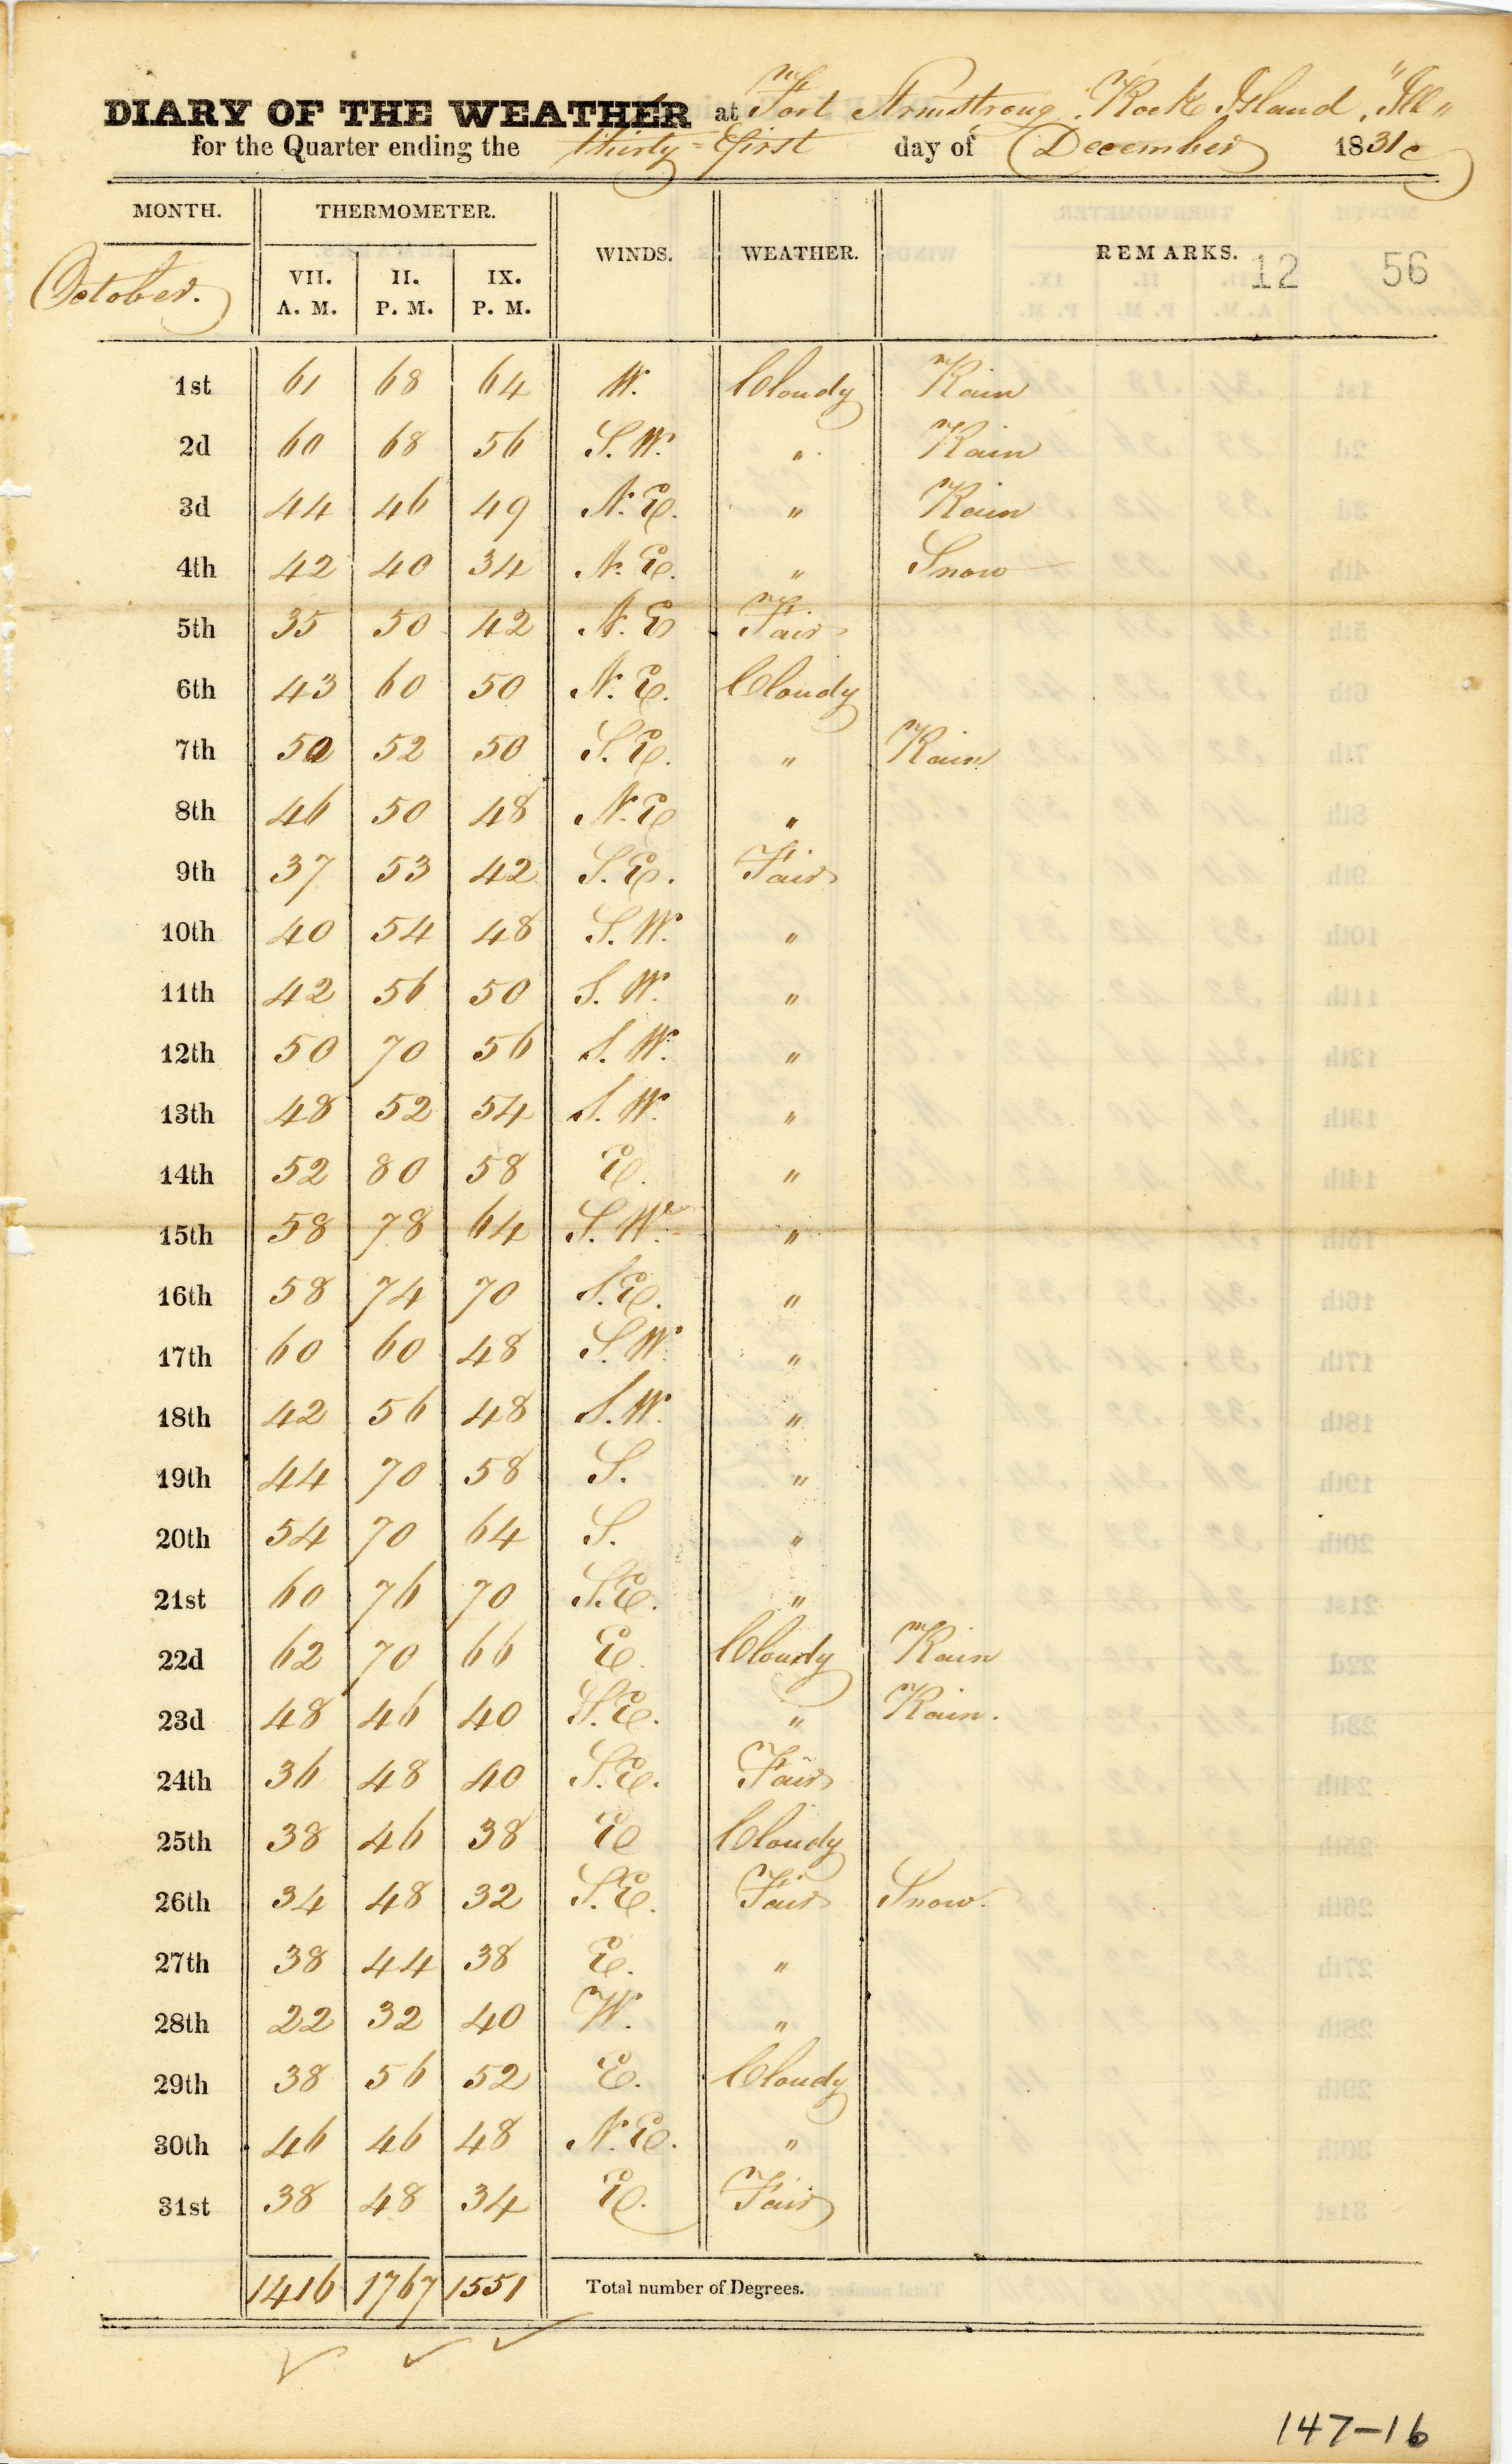 DIARY OF THE WEATHER at Fort Armstrong, Rock Island, "Ill"
for the Quarter ending the thirty=first day of December 1831
MONTH. THERMOMETER. WINDS. WEATHER. REMARKS. 12 56
October. VII. A. M. II. P. M. IX. P. M.
1st 61 68 64 W. Cloudy Rain
2d 60 68 56 S. W. " Rain
3d 44 46 49 N. E. " Rain
4th 42 40 34 N. E. " Snow
5th 35 50 42 N. E Fair
6th 43 60 50 N. E. Cloudy
7th 50 52 50 S. E. " Rain
8th 46 50 48 N. E "
9th 37 53 42 S. E. Fair
10th 40 54 48 S. W. "
11th 42 56 50 S. W. "
12th 50 70 56 S. W. "
13th 48 52 54 S. W. "
14th 52 80 58 E. "
15th 58 78 64 S. W. "
16th 58 74 70 S. E. "
17th 60 60 48 S. W. "
18th 42 56 48 S. W. "
19th 44 70 58 S. "
20th 54 70 64 S. "
21st 60 76 70 S. E. "
22d 62 70 66 E. Cloudy Rain
23d 48 46 40 S. E. " Rain.
24th 36 48 40 S. E. Fair
25th 38 46 38 E Cloudy
26th 34 48 32 S. E. Fair Snow.
27th 38 44 38 E. "
28th 22 32 40 W. "
29th 38 56 52 E. Cloudy
30th 46 46 48 N. E. "
31st 38 48 34 E. Fair
1416 1767 1551 Total number of Degrees.
147-16